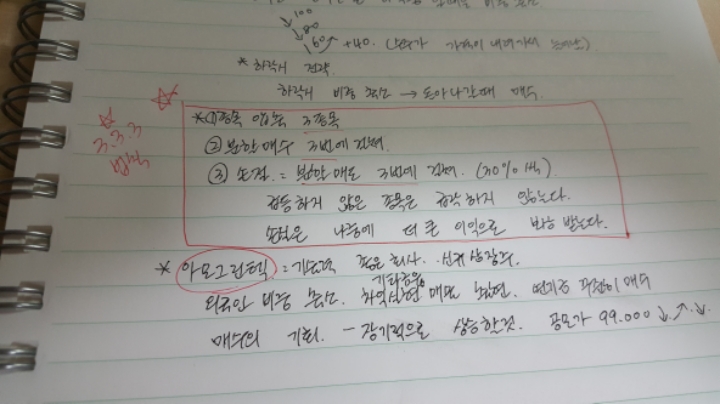 ↓100
↓80
60↗ +40. (단가 가격이 내려가서
* 하락시 전략.
하락시 비중 축소 → 돌아나갈때 매수.
☆ 3.3.3 법칙
* ① 종목 압축 3종목
② 분할매수 3번에 걸쳐.
③ 손절. = 분할매도 3번에 걸쳐. (30%씩)
급등하지 않은 종목은 급락하지 않는다.
손실은 나중에 더 큰 이익으로 보상 받는다.
* 아모그린텍 = 기술력 좋은 회사. 신규상장주.
외국인 비중 축소. 매도 연기금 꾸준히 매수
매수의 기회. - 장기적으로 상승할것. 공모가 99.000 ↓.↗.↓.